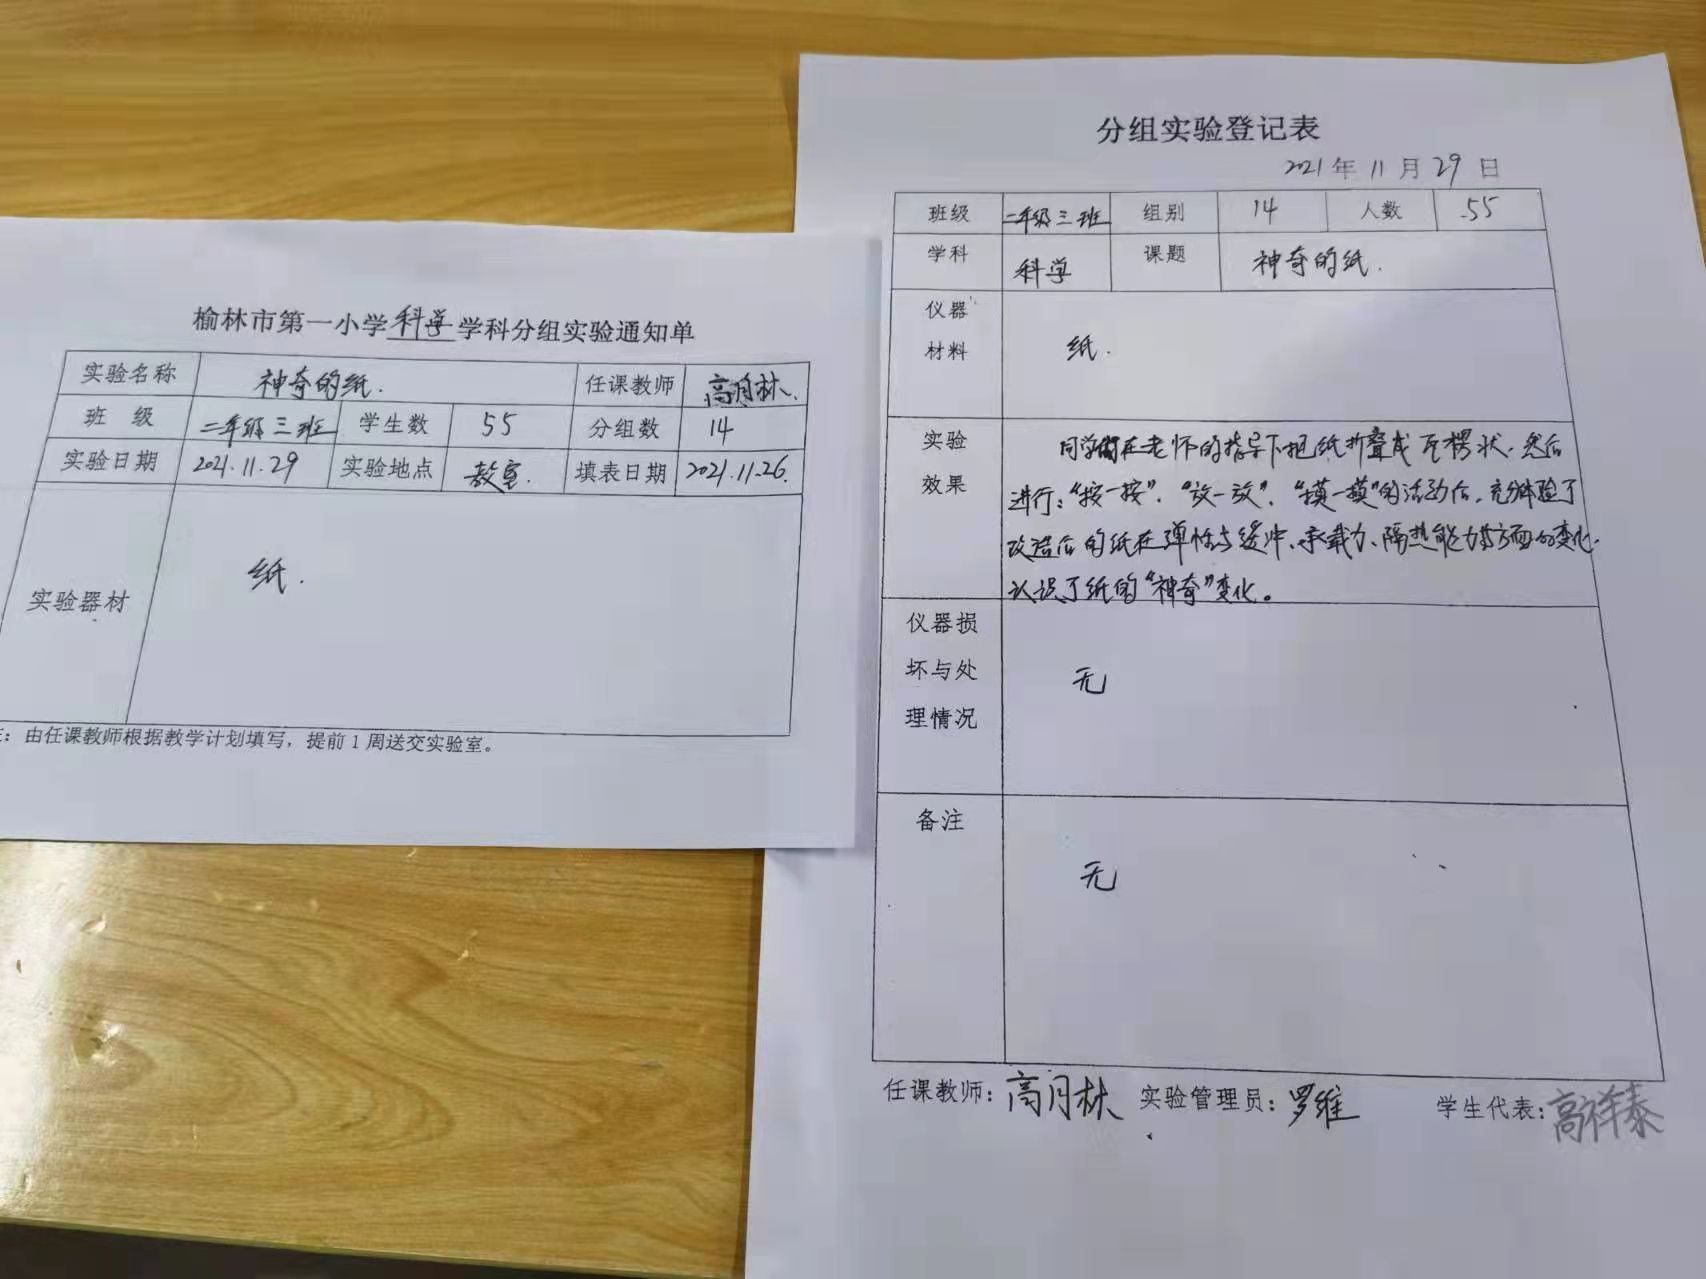 榆林市第一小学科学学科分组实验通知单
实验名称 神奇的纸. 任课教师 高月林.
班 级 二年级三班 学生数 55 分组数 14
实验日期 2021.11.29 实验地点 教室. 填表日期 2021.11.26.
实验器材 纸.
：由任课教师根据教学计划填写，提前1周送交实验室。
分组实验登记表
2021年11月29日
班级 二年级三班 组别 14 人数 55
学科 科学 课题 神奇的纸.
仪器
材料
纸.
实验
效果
同学们在老师的指导下把纸折叠成瓦楞状.然后
进行:“按一按”、“放一放”、“摸一摸”的活动后,充分体验了
改造后的纸在弹性与缓冲、承载力、隔热能力等方面的变化.
认识了纸的“神奇”变化。
仪器损
坏与处
理情况
无
备注
无
任课教师：高月林 实验管理员：罗维 学生代表：高祥泰